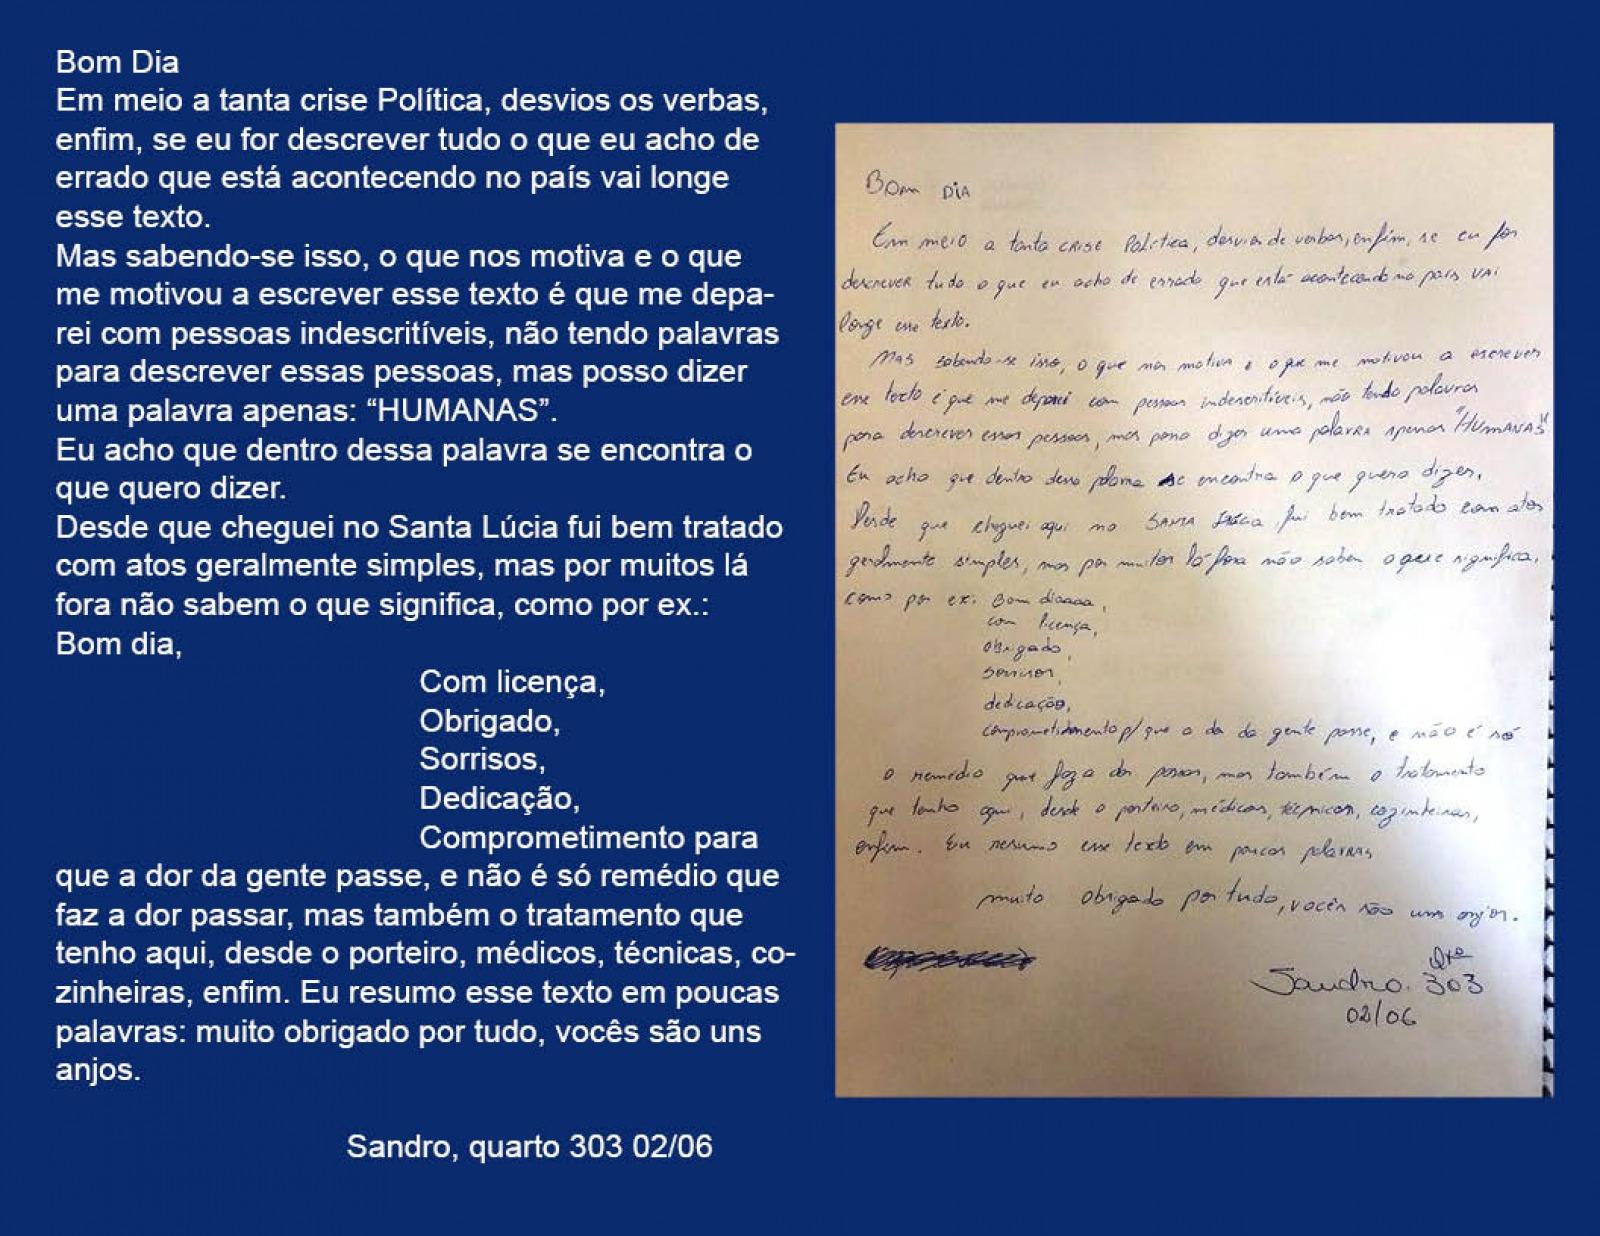 Bom Dia
Em meio a tanta crise Política, desvios os verbas,
enfim, se eu for descrever tudo o que eu acho de
errado que está acontecendo no país vai longe
esse texto.
Mas sabendo-se isso, o que nos motiva e o que
me motivou a escrever esse texto é que me depa-
rei com pessoas indescritíveis, não tendo palavras
para descrever essas pessoas, mas posso dizer
uma palavra apenas: “HUMANAS”.
Eu acho que dentro dessa palavra se encontra o
que quero dizer.
Desde que cheguei no Santa Lúcia fui bem tratado
com atos geralmente simples, mas por muitos lá
fora não sabem o que significa, como por ex.:
Bom dia,
Com licença,
Obrigado,
Sorrisos,
Dedicação,
Comprometimento para
que a dor da gente passe, e não é só remédio que
faz a dor passar, mas também o tratamento que
tenho aqui, desde o porteiro, médicos, técnicas, co-
zinheiras, enfim. Eu resumo esse texto em poucas
palavras: muito obrigado por tudo, vocês são uns
anjos.
Sandro, quarto 303 02/06
Bom DIA
Em meio a tanta crise Política, desvios de verbas, enfim, se eu for
descrever tudo o que eu acho de errado que está acontecendo no país vai
longe esse texto.
Mas sabendo-se isso, o que nos motiva e o que me motivou a escrever
esse texto é que me deparei com pessoas indescritíveis, não tendo palavras
para descrever essas pessoas, mas posso dizer uma palavra apenas "HUMANAS"
Eu acho que dentro dessa palavra se encontra o que quero dizer.
Desde que cheguei aqui no SANTA LÚCIA fui bem tratado com atos
geralmente simples, mas por muitos lá fora não sabem o que significa,
como por ex. Bom diaaaa,
com licença,
obrigado,
sorrisos,
dedicação,
comprometimento p/ que a dor da gente passe, e não é só
o remédio que faz a dor passar, mas também o tratamento
que tenho aqui, desde o porteiro, médicos, técnicas, cozinheiras,
enfim. Eu resumo esse texto em poucas palavras
muito obrigado por tudo, vocês são uns anjos.
Sandro. Qto 303
02/06